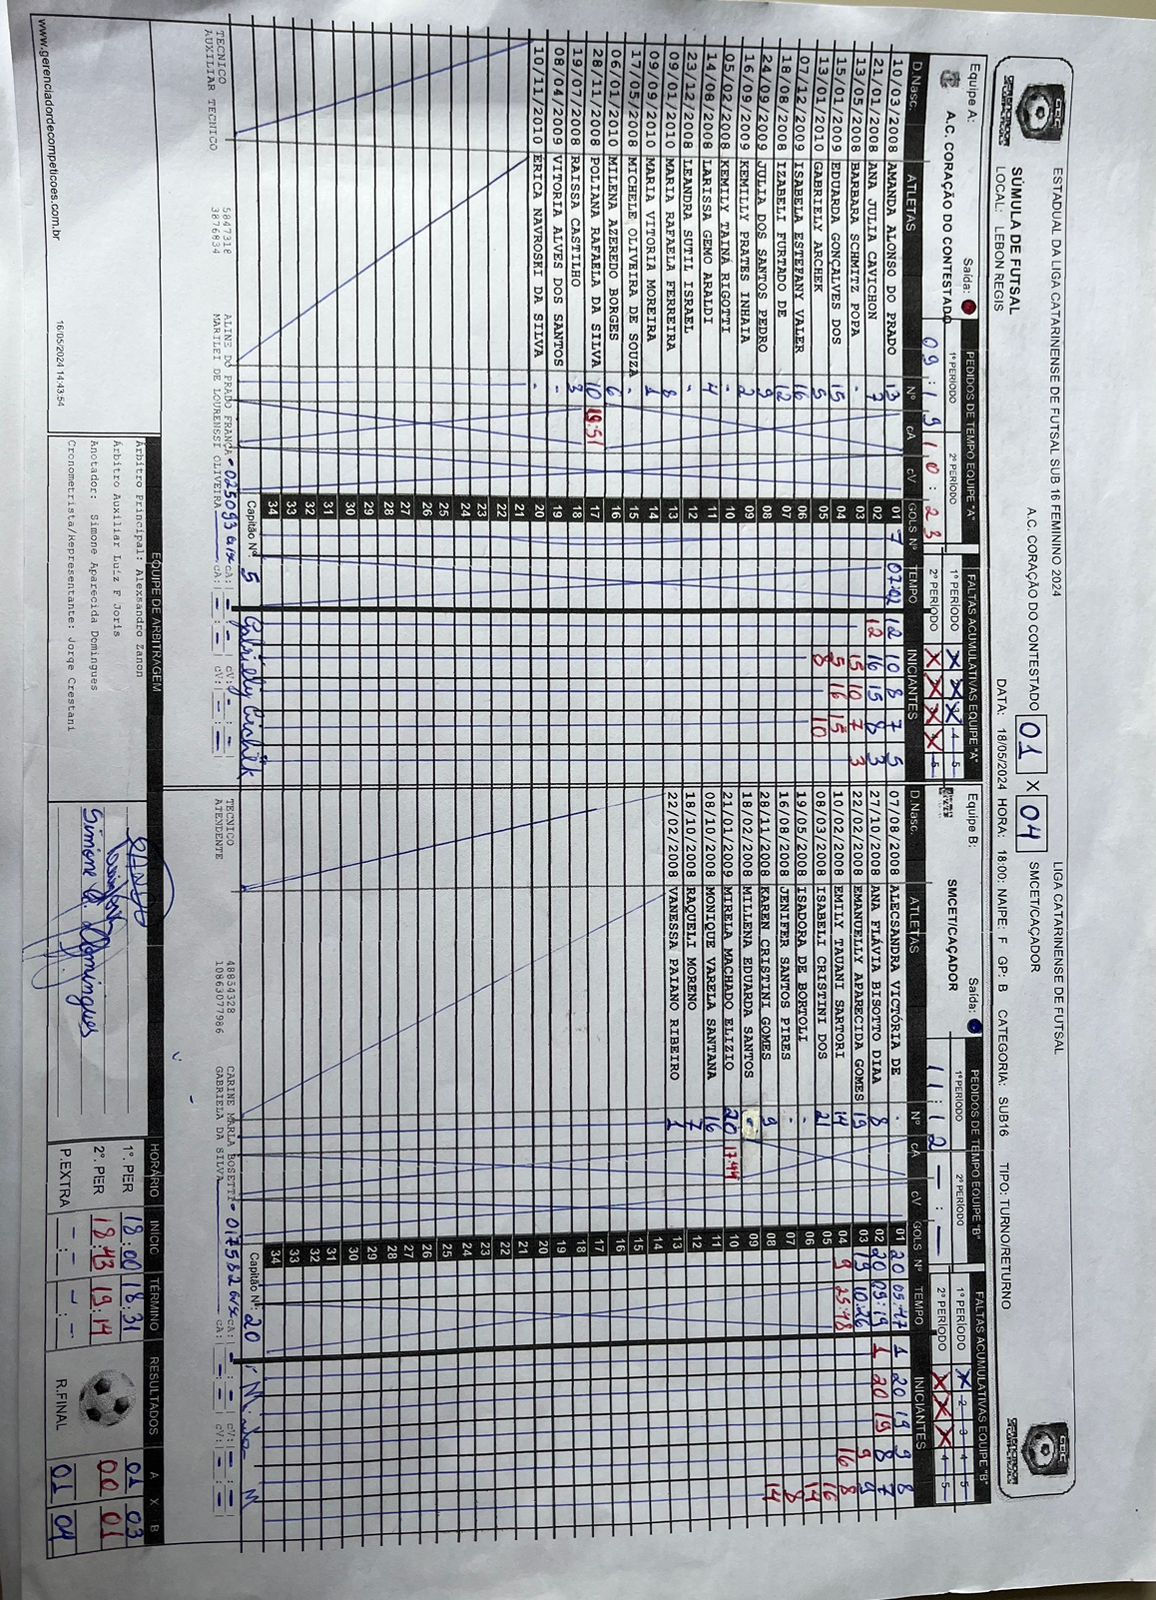 ESTADUAL DA LIGA CATARINENSE DE FUTSAL SUB 16 FEMININO 2024
LIGA CATARINENSE DE FUTSAL
SÚMULA DE FUTSAL
A.C. CORAÇÃO DO CONTESTADO 01 X 04 SMCET/CAÇADOR
LOCAL: LEBON REGIS
DATA: 18/05/2024 HORA: 18:00: NAIPE: F GP: B CATEGORIA: SUB16 TIPO: TURNO/RETURNO
Equipe A:
A.C. CORAÇÃO DO CONTESTADO
Saída:
PEDIDOS DE TEMPO EQUIPE "A"
1º PERÍODO 2º PERÍODO
09:19 10:23
FALTAS ACUMULATIVAS EQUIPE "A"
1º PERÍODO X X X 4 5
2º PERÍODO X X X X 5
D.Nasc. ATLETAS Nº CA CV GOLS Nº TEMPO INICIANTES
10/03/2008 AMANDA ALONSO DO PRADO 13 01 7 07:02 12 10 8 7 5
21/01/2008 ANA JULIA CAVICHON 7 02 12 16 15 8 3
13/05/2008 BARBARA SCHMITZ POPA - 03 15 10 7 3
15/01/2009 EDUARDA GONÇALVES DOS 15 04 5 16 15
13/01/2010 GABRIELY ARCHEK 5 05 8 10
07/12/2009 ISABELA ESTEFANY VALER 16 06
18/08/2008 IZABELI FURTADO DE 12 07
24/09/2009 JULIA DOS SANTOS PEDRO 9 08
16/09/2009 KEMILLY PRATES INHAIA 2 09
05/02/2008 KEMILY TAINÁ RIGOTTI - 10
14/08/2008 LARISSA GEMO ARALDI 4 11
23/12/2008 LEANDRA SUTIL ISRAEL - 12
09/01/2010 MARIA RAFAELA FERREIRA 8 13
09/09/2010 MARIA VITORIA MOREIRA 1 14
17/05/2008 MICHELE OLIVEIRA DE SOUZA - 15
06/01/2010 MILENA AZEREDO BORGES 6 16
28/11/2008 POLIANA RAFAELA DA SILVA 10 19:51 17
19/07/2008 RAISSA CASTILHO 3 18
08/04/2009 VITORIA ALVES DOS SANTOS - 19
10/11/2010 ERICA NAVROSKI DA SILVA - 20
21
22
23
24
25
26
27
28
29
30
31
32
33
34
Capitão Nº 5
TECNICO 5847318 ALINE DO PRADO FRANÇA CA: CV:
AUXILIAR TECNICO 3876834 MARILEI DE LOURENSSI OLIVEIRA CA: CV:
Equipe B:
SMCET/CAÇADOR
Saída:
PEDIDOS DE TEMPO EQUIPE "B"
1º PERÍODO 2º PERÍODO
11:12 - : -
FALTAS ACUMULATIVAS EQUIPE "B"
1º PERÍODO X 2 3 4 5
2º PERÍODO X X X 4 5
D.Nasc. ATLETAS Nº CA CV GOLS Nº TEMPO INICIANTES
07/08/2008 ALECSANDRA VICTÓRIA DE - 01 20 05:47 1 20 19 9 8
27/10/2008 ANA FLÁVIA BISOTTO DIAA 8 02 20 09:19 1 20 19 8 7
22/02/2008 EMANUELLY APARECIDA GOMES 19 03 19 10:26 9 9
10/02/2008 EMILY TAUANI SARTORI 14 04 9 25:48 16 8
08/03/2008 ISABELI CRISTINI DOS 21 05 16
19/05/2008 ISADORA DE BORTOLI - 06 14
16/08/2008 JENIFER SANTOS PIRES - 07 8
28/11/2008 KAREN CRISTINI GOMES 9 08 14
18/02/2008 MILLENA EDUARDA SANTOS 09
21/01/2009 MIRELA MACHADO ELIZIO 20 17:44 10
08/10/2008 MONIQUE VARELA SANTANA 16 11
18/10/2008 RAQUELI MORENO 7 12
22/02/2008 VANESSA PAIANO RIBEIRO 1 13
14
15
16
17
18
19
20
21
22
23
24
25
26
27
28
29
30
31
32
33
34
Capitão Nº: 20
TECNICO 48854328 CARINE MARLA BOSETTI CA: CV:
ATENDENTE 10863077986 GABRIELA DA SILVA CA: CV:
EQUIPE DE ARBITRAGEM
Árbitro Principal: Alexsandro Zanon
Árbitro Auxiliar Luiz F Joris
Anotador: Simone Aparecida Domingues
Simone A. Domingues
Cronometrista/Representante: Jorge Crestani
HORÁRIO INÍCIO TÉRMINO RESULTADOS A X B
1º. PER 18:00 18:31 01 03
2º. PER 18:43 19:14 00 01
P.EXTRA - : - - : - R.FINAL 01 04
16/05/2024 14:43:54
www.gerenciadordecompeticoes.com.br